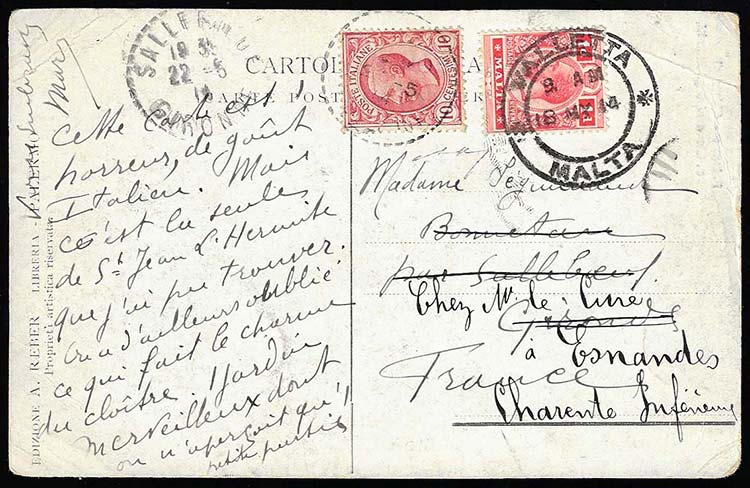 CARTOLINA
CARTE POST
EDIZIONE A. REBER LIBRERIA - PALERMO
Proprietà artistica riservata
SALLEBOEUF
19 35
22 - 5
14
GIRONDE
POSTE ITALIANE
CENTESIMI 10
MALTA
1d
VALLETTA
9. AM
18 MY 14
MALTA
Mars
Cette carte est l'
horreur, de goût
Italien. Mais
c'est la seule
de St Jean L'Hermite
que j'ai pu trouver.
on a d'ailleurs oublié
ce qui fait le charme
du cloître. 1 jardin
merveilleux dont
on n'aperçoit qu'1
petite partie
Madame
Bonnetan
par Salleboeuf
Gironde
France
Chez Mr le Curé
à Esnandes
Charente Inférieure